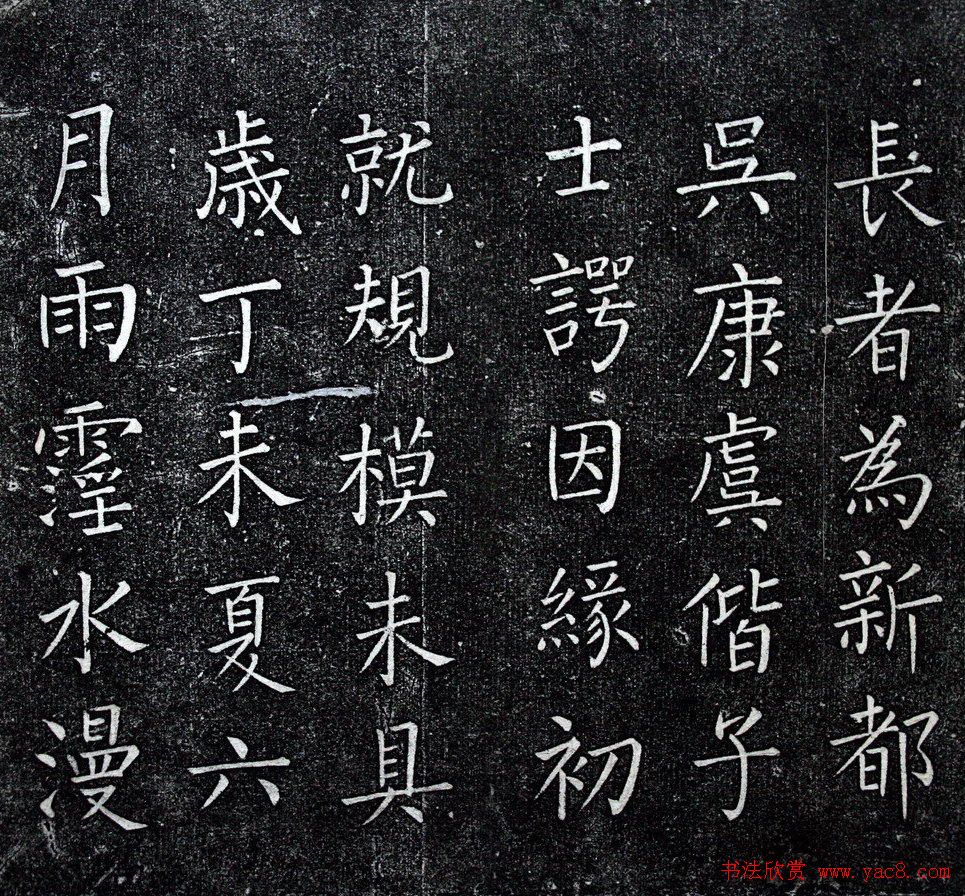 長者為新都
吳康虞偕子
士諤因緣初
就規模未具
歳丁未夏六
月雨霪水漫
书法欣赏 www.yac8.com